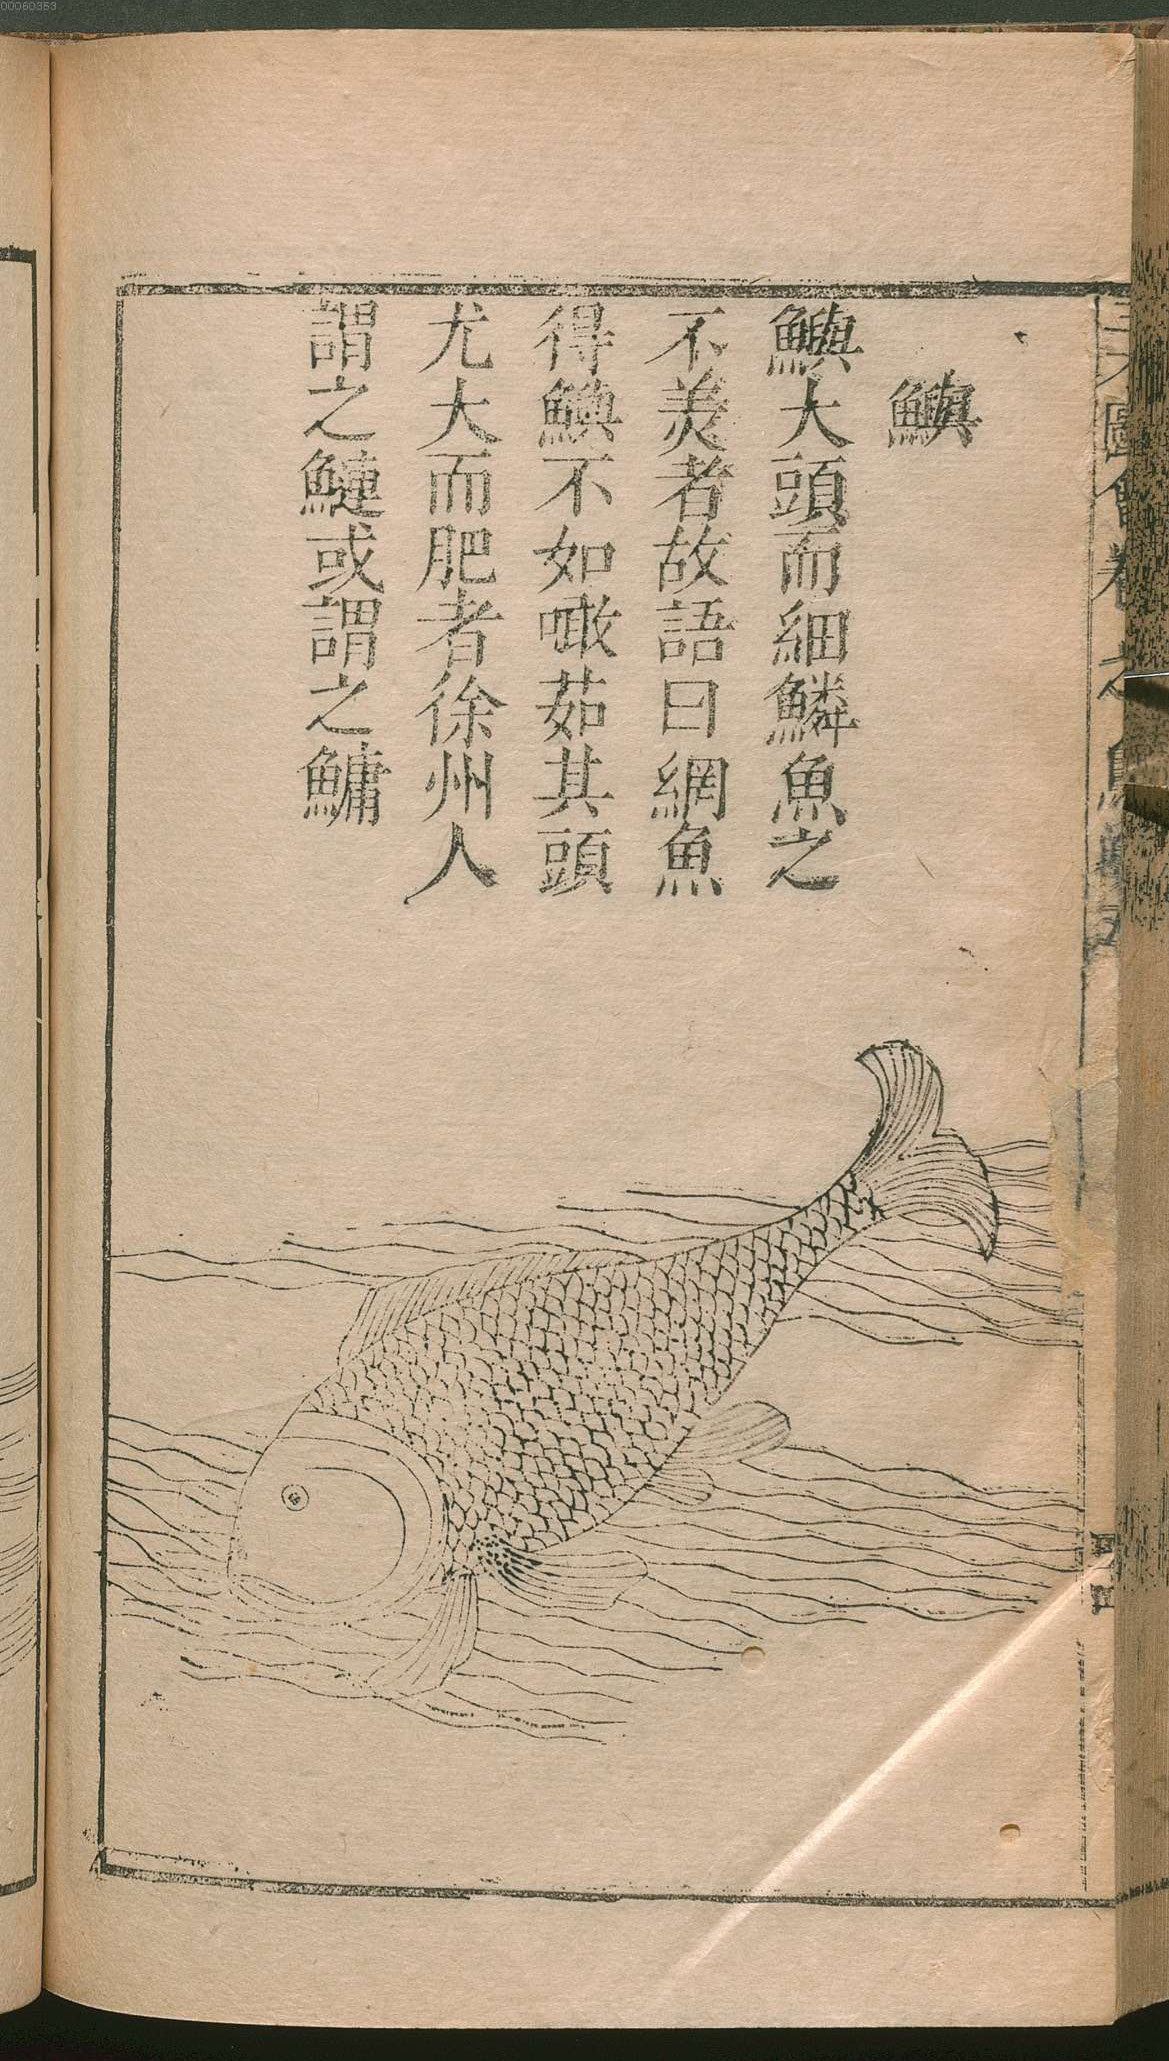 鱮
鱮大頭而細鱗魚之
不美者故語曰網魚
得鱮不如啖茹其頭
尤大而肥者徐州人
謂之鰱或謂之鱅
00060353